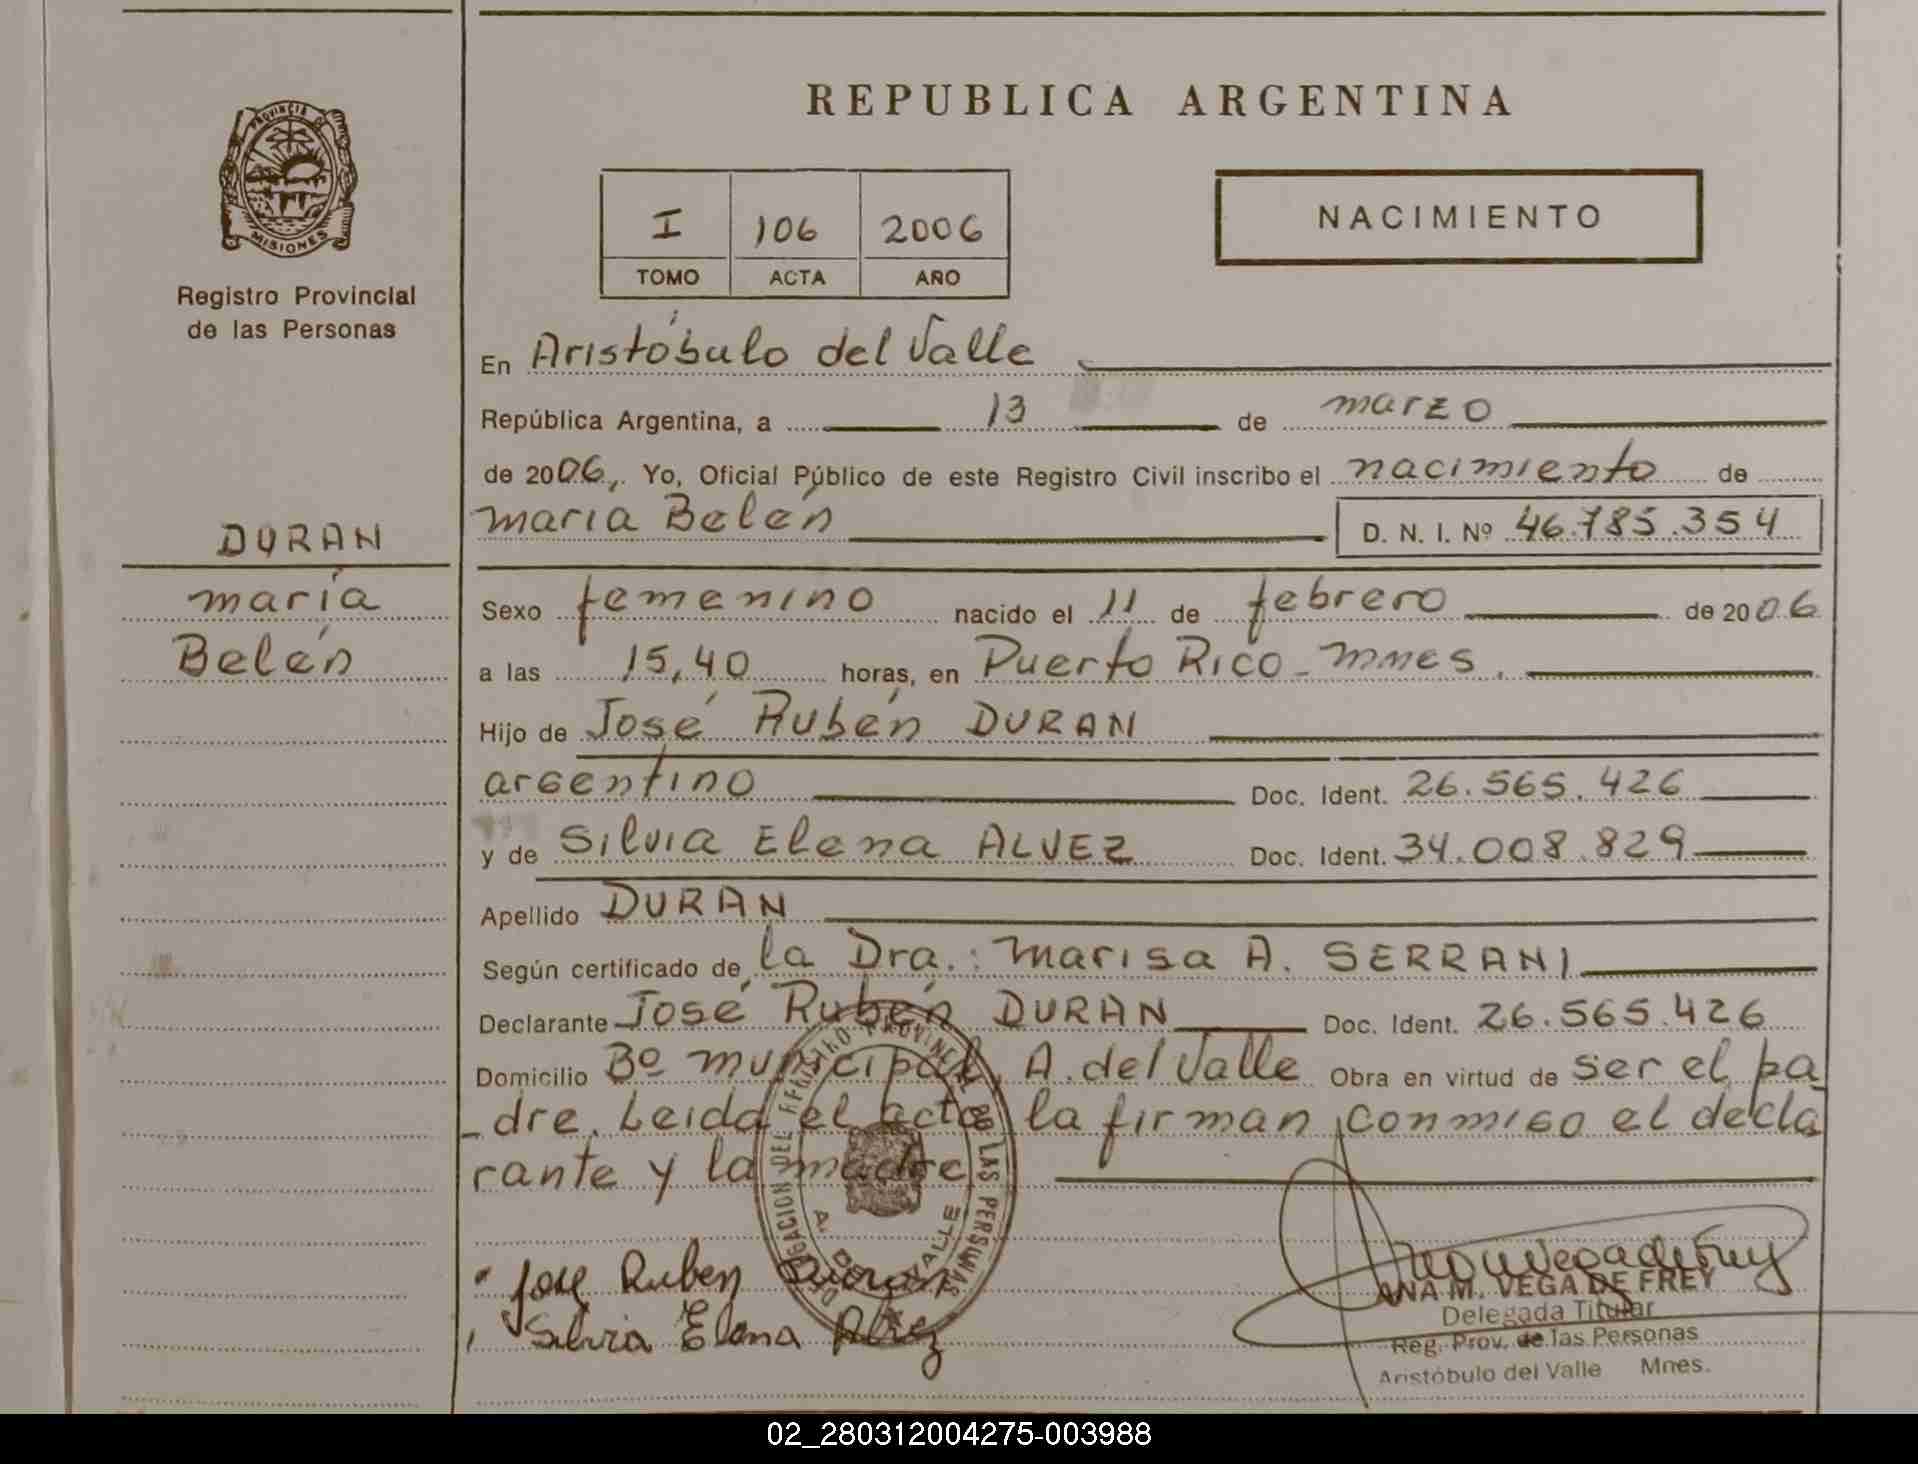 REPUBLICA ARGENTINA
PROVINCIA DE
MISIONES
Registro Provincial
de las Personas
I 106 2006
TOMO ACTA AÑO
NACIMIENTO
En Aristóbulo del Valle
República Argentina, a 13 de marzo
de 2006, Yo, Oficial Público de este Registro Civil inscribo el nacimiento de
María Belén D. N. I. Nº 46.785.354
DURAN
maría
Belén
Sexo femenino nacido el 11 de febrero de 2006
a las 15,40 horas, en Puerto Rico - Mnes.
Hijo de José Rubén DURAN
argentino Doc. Ident. 26.565.426
y de Silvia Elena ALVEZ Doc. Ident. 34.008.829
Apellido DURAN
Según certificado de la Dra.: Marisa A. SERRANI
Declarante José Rubén DURAN Doc. Ident. 26.565.426
Domicilio Bº municipal, A. del Valle Obra en virtud de ser el pa_
_dre. Leida el acta la firman conmigo el decla
rante y la madre
DELEGACION DEL REGISTRO PROVINCIAL DE LAS PERSONAS
A. DEL VALLE
Jose Ruben Duran
Silvia Elena Alvez
ANA M. VEGA DE FREY
Delegada Titular
Reg. Prov. de las Personas
Aristóbulo del Valle Mnes.
02_280312004275-003988